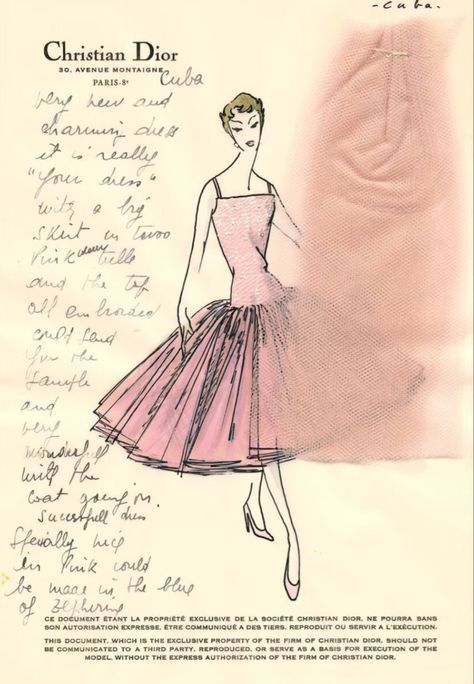 - Cuba.
Christian Dior
30, AVENUE MONTAIGNE
PARIS-8e
Cuba
very new and
charming dress
it is really
"Your dress"
with a big
skirt in towo
Pink tulle
and the top
all embroided
could send
for the
sample
and
very
wonderfull
with the
coat going on.
Sucessfull dress
Specially nice
in Pink could
be made in the blue
of Zephirine
CE DOCUMENT ÉTANT LA PROPRIÉTÉ EXCLUSIVE DE LA SOCIÉTÉ CHRISTIAN DIOR, NE POURRA SANS
SON AUTORISATION EXPRESSE, ÊTRE COMMUNIQUÉ A DES TIERS, REPRODUIT OU SERVIR A L'EXÉCUTION.
THIS DOCUMENT, WHICH IS THE EXCLUSIVE PROPERTY OF THE FIRM OF CHRISTIAN DIOR, SHOULD NOT
BE COMMUNICATED TO A THIRD PARTY, REPRODUCED, OR SERVE AS A BASIS FOR EXECUTION OF THE
MODEL, WITHOUT THE EXPRESS AUTHORIZATION OF THE FIRM OF CHRISTIAN DIOR.